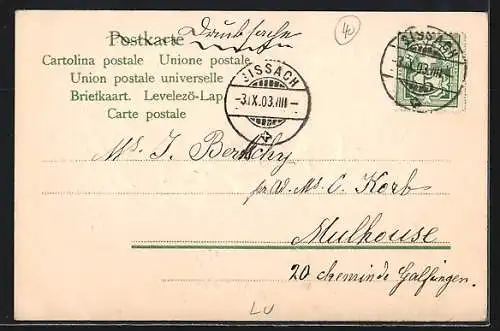 Postkarte Drucksache
Cartolina postale Unione postale
Union postale universelle
Briefkaart. Levelező-Lap
Carte postale
SISSACH
-3.IX.03.
SISSACH
-3.IX.03.
Ms. J.
Ms. C. Korb
Mulhouse
20 chemin de
LU